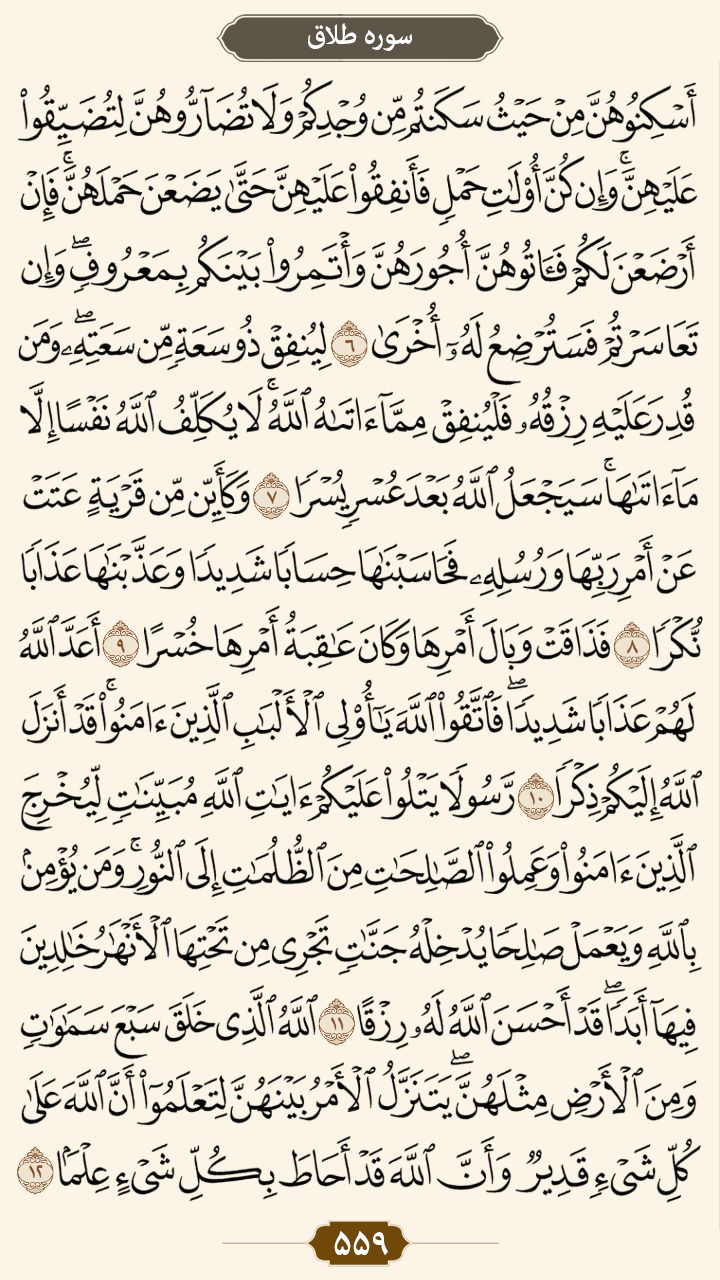 سوره طلاق
أَسْكِنُوهُنَّ مِنْ حَيْثُ سَكَنتُم مِّن وُجْدِكُمْ وَلَا تُضَآرُّوهُنَّ لِتُضَيِّقُوا۟
عَلَيْهِنَّ ۚ وَإِن كُنَّ أُو۟لَٰتِ حَمْلٍ فَأَنفِقُوا۟ عَلَيْهِنَّ حَتَّىٰ يَضَعْنَ حَمْلَهُنَّ ۚ فَإِنْ
أَرْضَعْنَ لَكُمْ فَـَٔاتُوهُنَّ أُجُورَهُنَّ وَأْتَمِرُوا۟ بَيْنَكُم بِمَعْرُوفٍ ۖ وَإِن
تَعَاسَرْتُمْ فَسَتُرْضِعُ لَهُۥٓ أُخْرَىٰ ٦ لِيُنفِقْ ذُو سَعَةٍ مِّن سَعَتِهِۦ ۖ وَمَن
قُدِرَ عَلَيْهِ رِزْقُهُۥ فَلْيُنفِقْ مِمَّآ ءَاتَىٰهُ ٱللَّهُ ۚ لَا يُكَلِّفُ ٱللَّهُ نَفْسًا إِلَّا
مَآ ءَاتَىٰهَا ۚ سَيَجْعَلُ ٱللَّهُ بَعْدَ عُسْرٍ يُسْرًا ٧ وَكَأَيِّن مِّن قَرْيَةٍ عَتَتْ
عَنْ أَمْرِ رَبِّهَا وَرُسُلِهِۦ فَحَاسَبْنَٰهَا حِسَابًا شَدِيدًا وَعَذَّبْنَٰهَا عَذَابًا
نُّكْرًا ٨ فَذَاقَتْ وَبَالَ أَمْرِهَا وَكَانَ عَٰقِبَةُ أَمْرِهَا خُسْرًا ٩ أَعَدَّ ٱللَّهُ
لَهُمْ عَذَابًا شَدِيدًا ۖ فَٱتَّقُوا۟ ٱللَّهَ يَٰٓأُو۟لِى ٱلْأَلْبَٰبِ ٱلَّذِينَ ءَامَنُوا۟ ۚ قَدْ أَنزَلَ
ٱللَّهُ إِلَيْكُمْ ذِكْرًا ١٠ رَّسُولًا يَتْلُوا۟ عَلَيْكُمْ ءَايَٰتِ ٱللَّهِ مُبَيِّنَٰتٍ لِّيُخْرِجَ
ٱلَّذِينَ ءَامَنُوا۟ وَعَمِلُوا۟ ٱلصَّٰلِحَٰتِ مِنَ ٱلظُّلُمَٰتِ إِلَى ٱلنُّورِ ۚ وَمَن يُؤْمِنۢ
بِٱللَّهِ وَيَعْمَلْ صَٰلِحًا يُدْخِلْهُ جَنَّٰتٍ تَجْرِى مِن تَحْتِهَا ٱلْأَنْهَٰرُ خَٰلِدِينَ
فِيهَآ أَبَدًا ۖ قَدْ أَحْسَنَ ٱللَّهُ لَهُۥ رِزْقًا ١١ ٱللَّهُ ٱلَّذِى خَلَقَ سَبْعَ سَمَٰوَٰتٍ
وَمِنَ ٱلْأَرْضِ مِثْلَهُنَّ ۖ يَتَنَزَّلُ ٱلْأَمْرُ بَيْنَهُنَّ لِتَعْلَمُوٓا۟ أَنَّ ٱللَّهَ عَلَىٰ
كُلِّ شَىْءٍ قَدِيرٌ وَأَنَّ ٱللَّهَ قَدْ أَحَاطَ بِكُلِّ شَىْءٍ عِلْمًۢا ١٢
۵۵۹